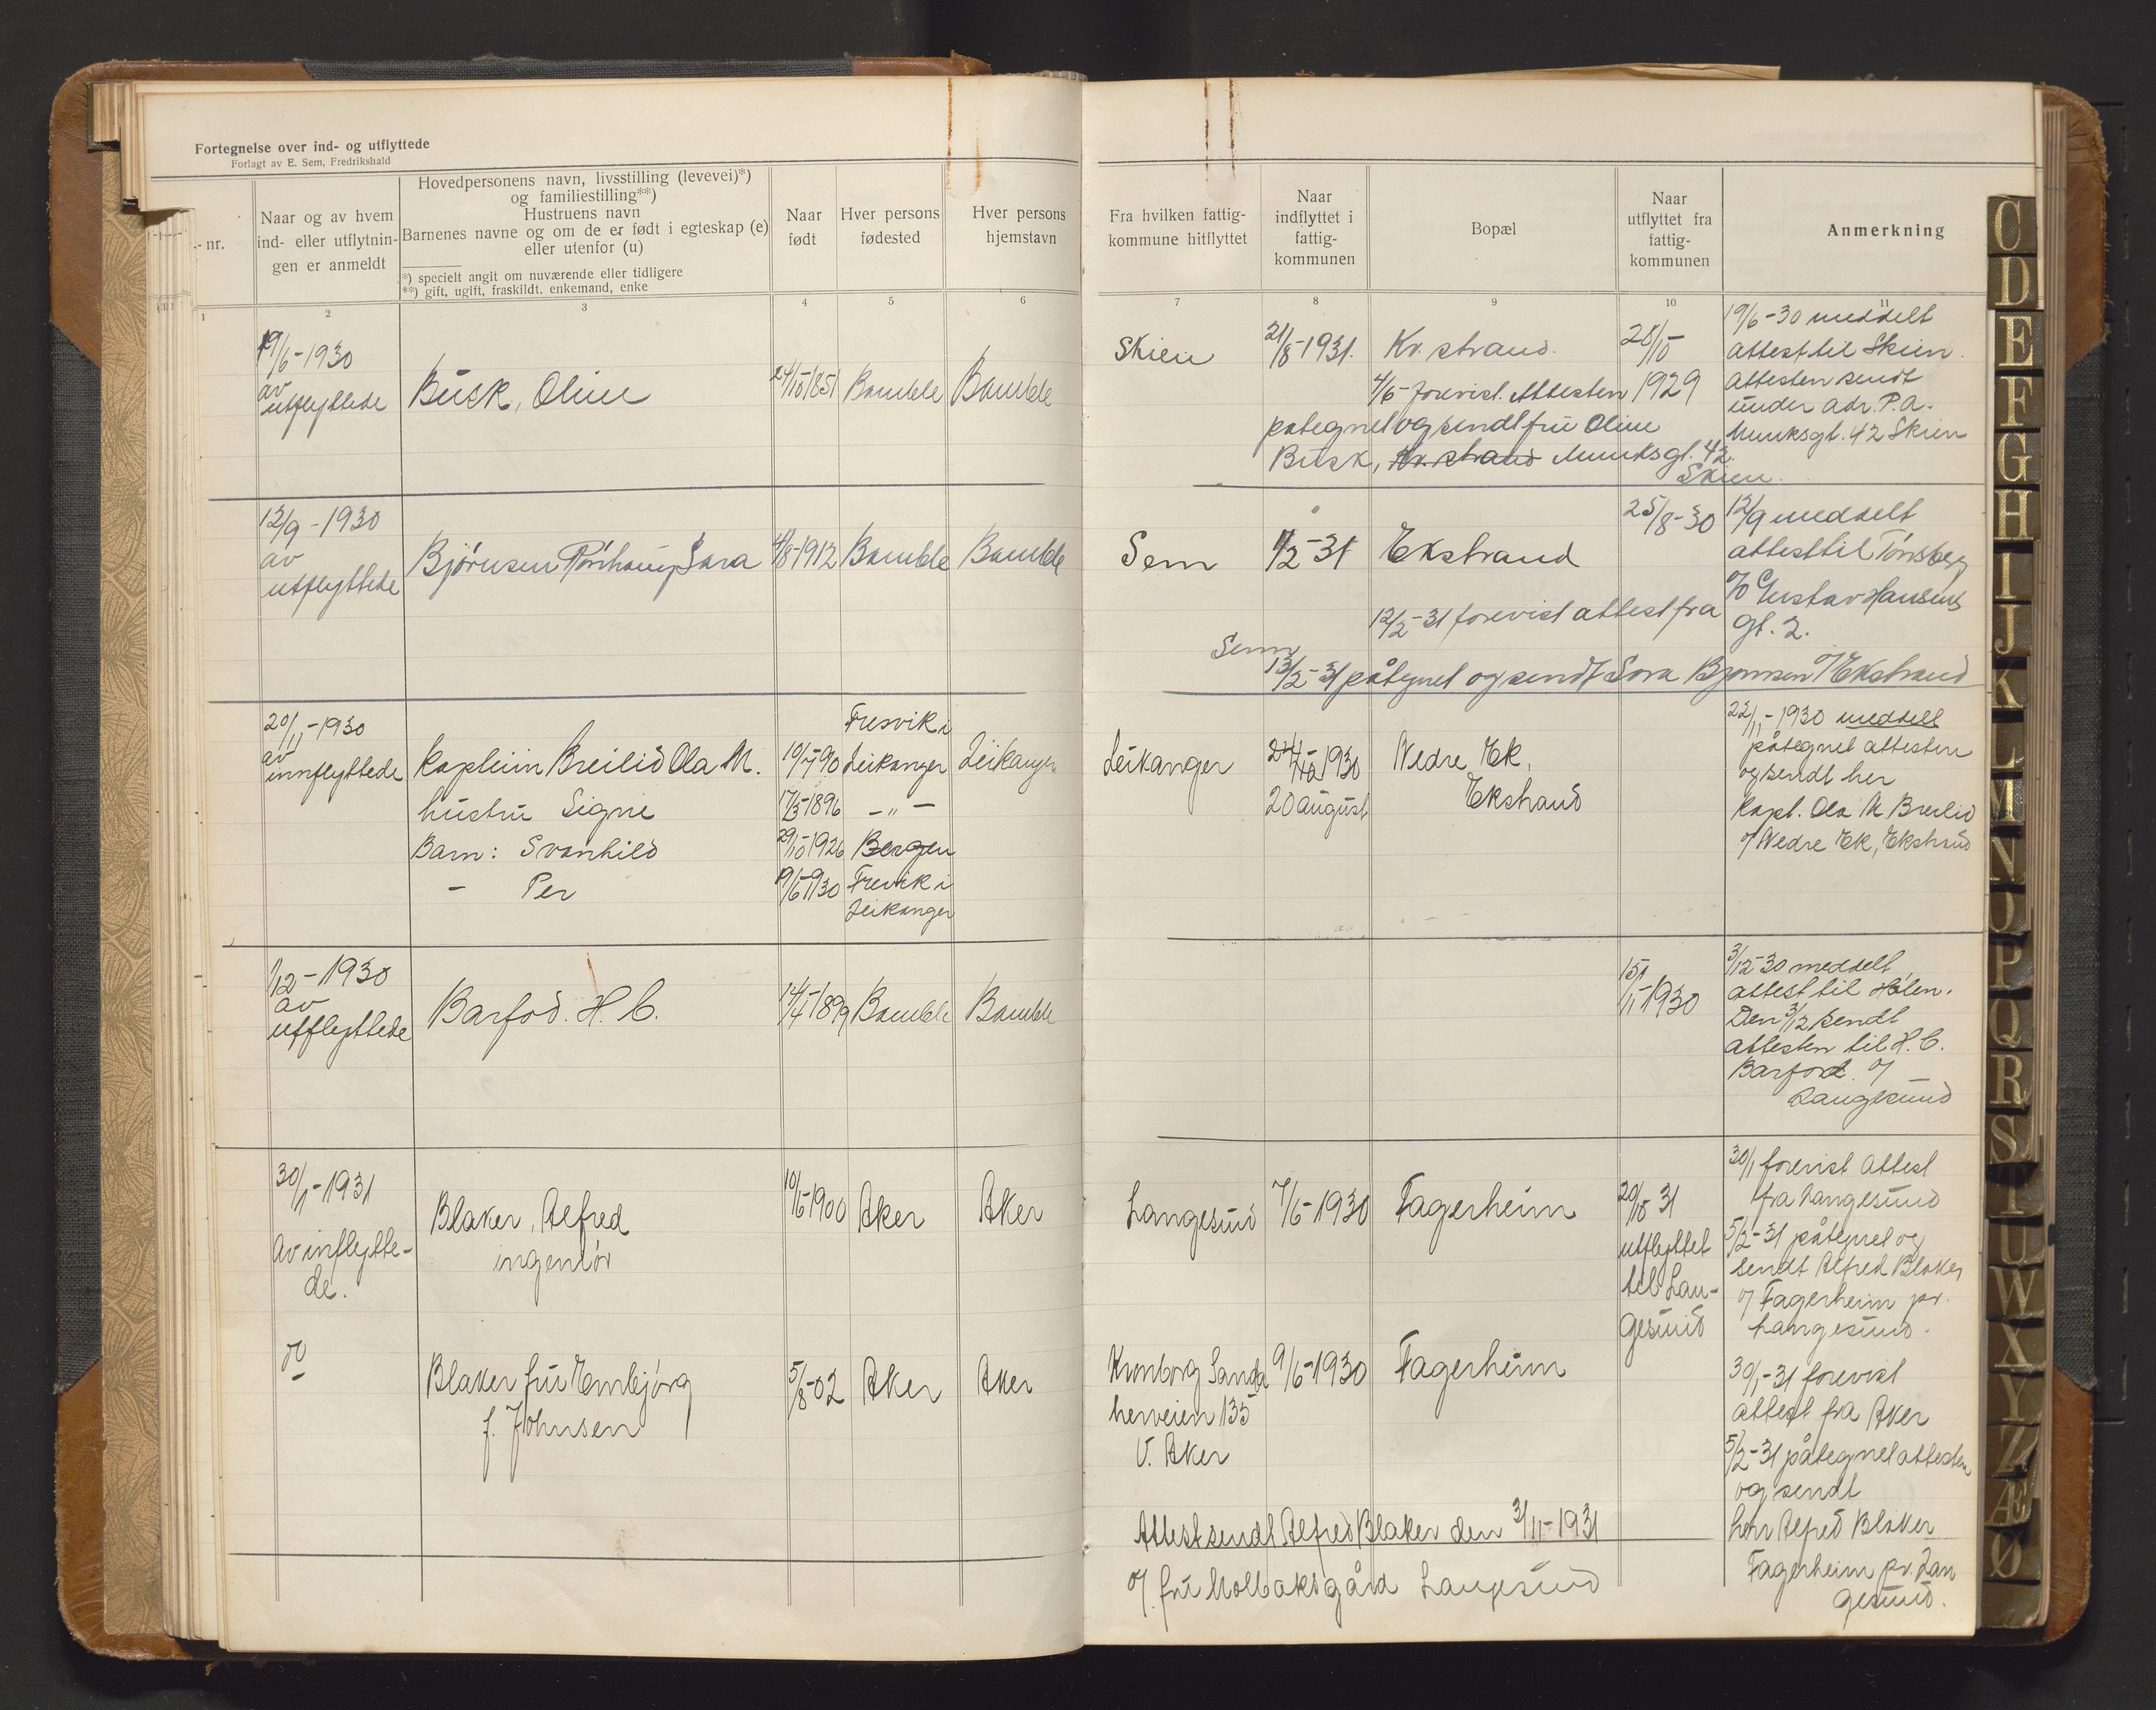 Fortegnelse over ind- og utflyttede
Forlagt av E. Sem, Fredrikshald
- nr.
Naar og av hvem
ind- eller utflytnin-
gen er anmeldt
Hovedpersonens navn, livsstilling (levevei)*)
og familiestilling**)
Hustruens navn
Barnenes navne og om de er født i egteskap (e)
eller utenfor (u)
*) specielt angit om nuværende eller tidligere
**) gift, ugift, fraskildt, enkemand, enke
Naar
født
Hver persons
fødested
Hver persons
hjemstavn
Fra hvilken fattig-
kommune hitflyttet
Naar
indflyttet i
fattig-
kommunen
Bopæl
Naar
utflyttet fra
fattig-
kommunen
Anmerkning
1 2 3 4 5 6 7 8 9 10 11
19/6-1930
av
utflyttede
Busk, Oline
24/10 1851
Bamble
Bamble
Skien
21/8-1931.
Kr. strand.
28/10
1929
4/6 forevist. Attesten
pategnet og sendt fru Oline
Busk, Kr. strand Munksgt. 42.
Skien.
19/6-30 meddelt
attest til Skien.
Attesten sendt
under adr. P.a.
Munksgt. 42 Skien
12/9-1930
av
utflyttede
Björnsen Sara
4/8-1912
Bamble
Bamble
Sem
1/2-31
Ekstrand
25/8-30
12/2-31 forevist attest fra
Sem
13/2-31 påtegnet og sendt Sara Bjørnsen Ekstrand
12/9 meddelt
attest til Tönsberg
c/o Gustav Hansens
gt. 2.
20/11-1930
av
innflyttede
Kaptein Breilid Ola M.
hustru Signe
Barn: Svanhild
- Per
10/7-90
17/3-1896
29/10 1926
9/6-1930
Fresvik i
Leikanger
- " -
Bergen
Frevik i
Leikanger
Leikanger
Leikanger
1930
20 august
Nedre Ek,
Ekstrand
22/11-1930 meddelt
påtegnet attesten
og sendt her
Kapt. Ola M Breilid
Nedre Ek, Ekstrand
1/12-1930
av
utflyttede
Barfod. H. C.
14/4-1899
Bamble
Bamble
15/11-1930
3/12-30 meddelt
attest til Hølen.
Den 3/12 sendt
attesten til H. C.
Barfod.
Langesund
30/1-1931
Av inflytte-
de.
Blaker, Alfred
ingeniör
10/6-1900
Aker
Aker
Langesund
7/6-1930
Fagerheim
20/10 31
utflyttet
til Lan-
gesund
30/1 forevist Attest
fra Langesund
5/2-31 påtegnet og
sendt Alfred Blaker
Fagerheim pr.
Langesund.
do
Blaker fru Embjörg
f. Johnsen
5/8-02
Aker
Aker
Kronborg Sanda
herveien 135
V. Aker
9/6-1930
Fagerheim
30/1-31 forevist
attest fra Aker
5/2-31 påtegnet attesten
og sendt
herr Alfred Blaker
Fagerheim pr. Lan
gesund.
Attest sendt Alfred Blaker den 3/11-1931
fru Molbaksgård Langesund
C
D
E
F
G
H
I
J
K
L
M
N
O
P
Q
R
S
T
U
W
X
Y
Z
Æ
Ø